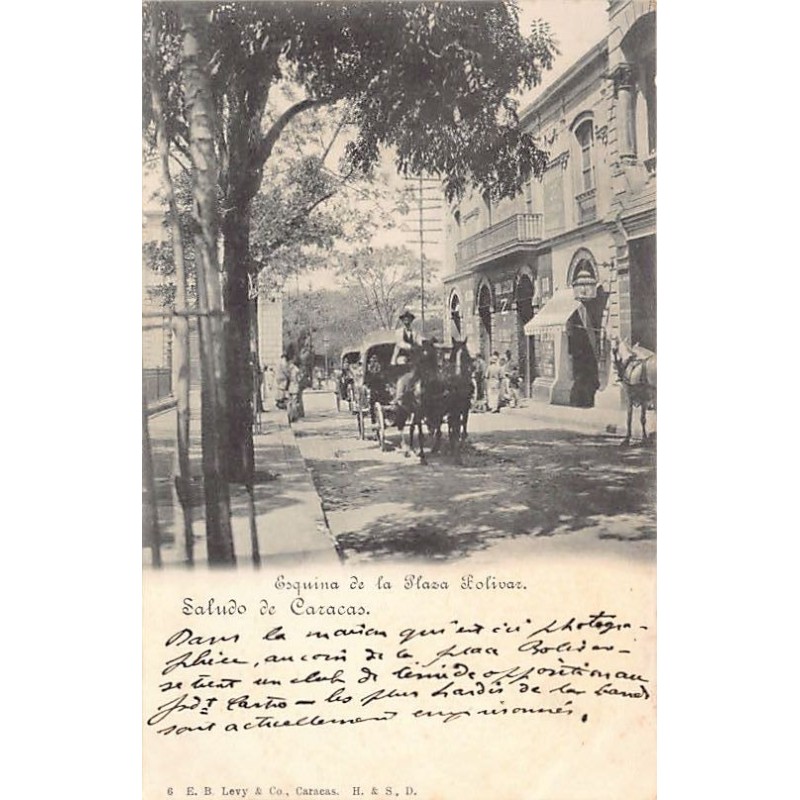 Esquina de la Plaza Bolivar.
Saludo de Caracas.
Dans la maison qui est ici photogra-
phiée, au coin de la place Bolivar -
se tient un club de timide opposition au
Prdt Castro - les plus hardis de la bande
sont actuellement emprisonnés.
6 E. B. Levy & Co., Caracas. H. & S., D.